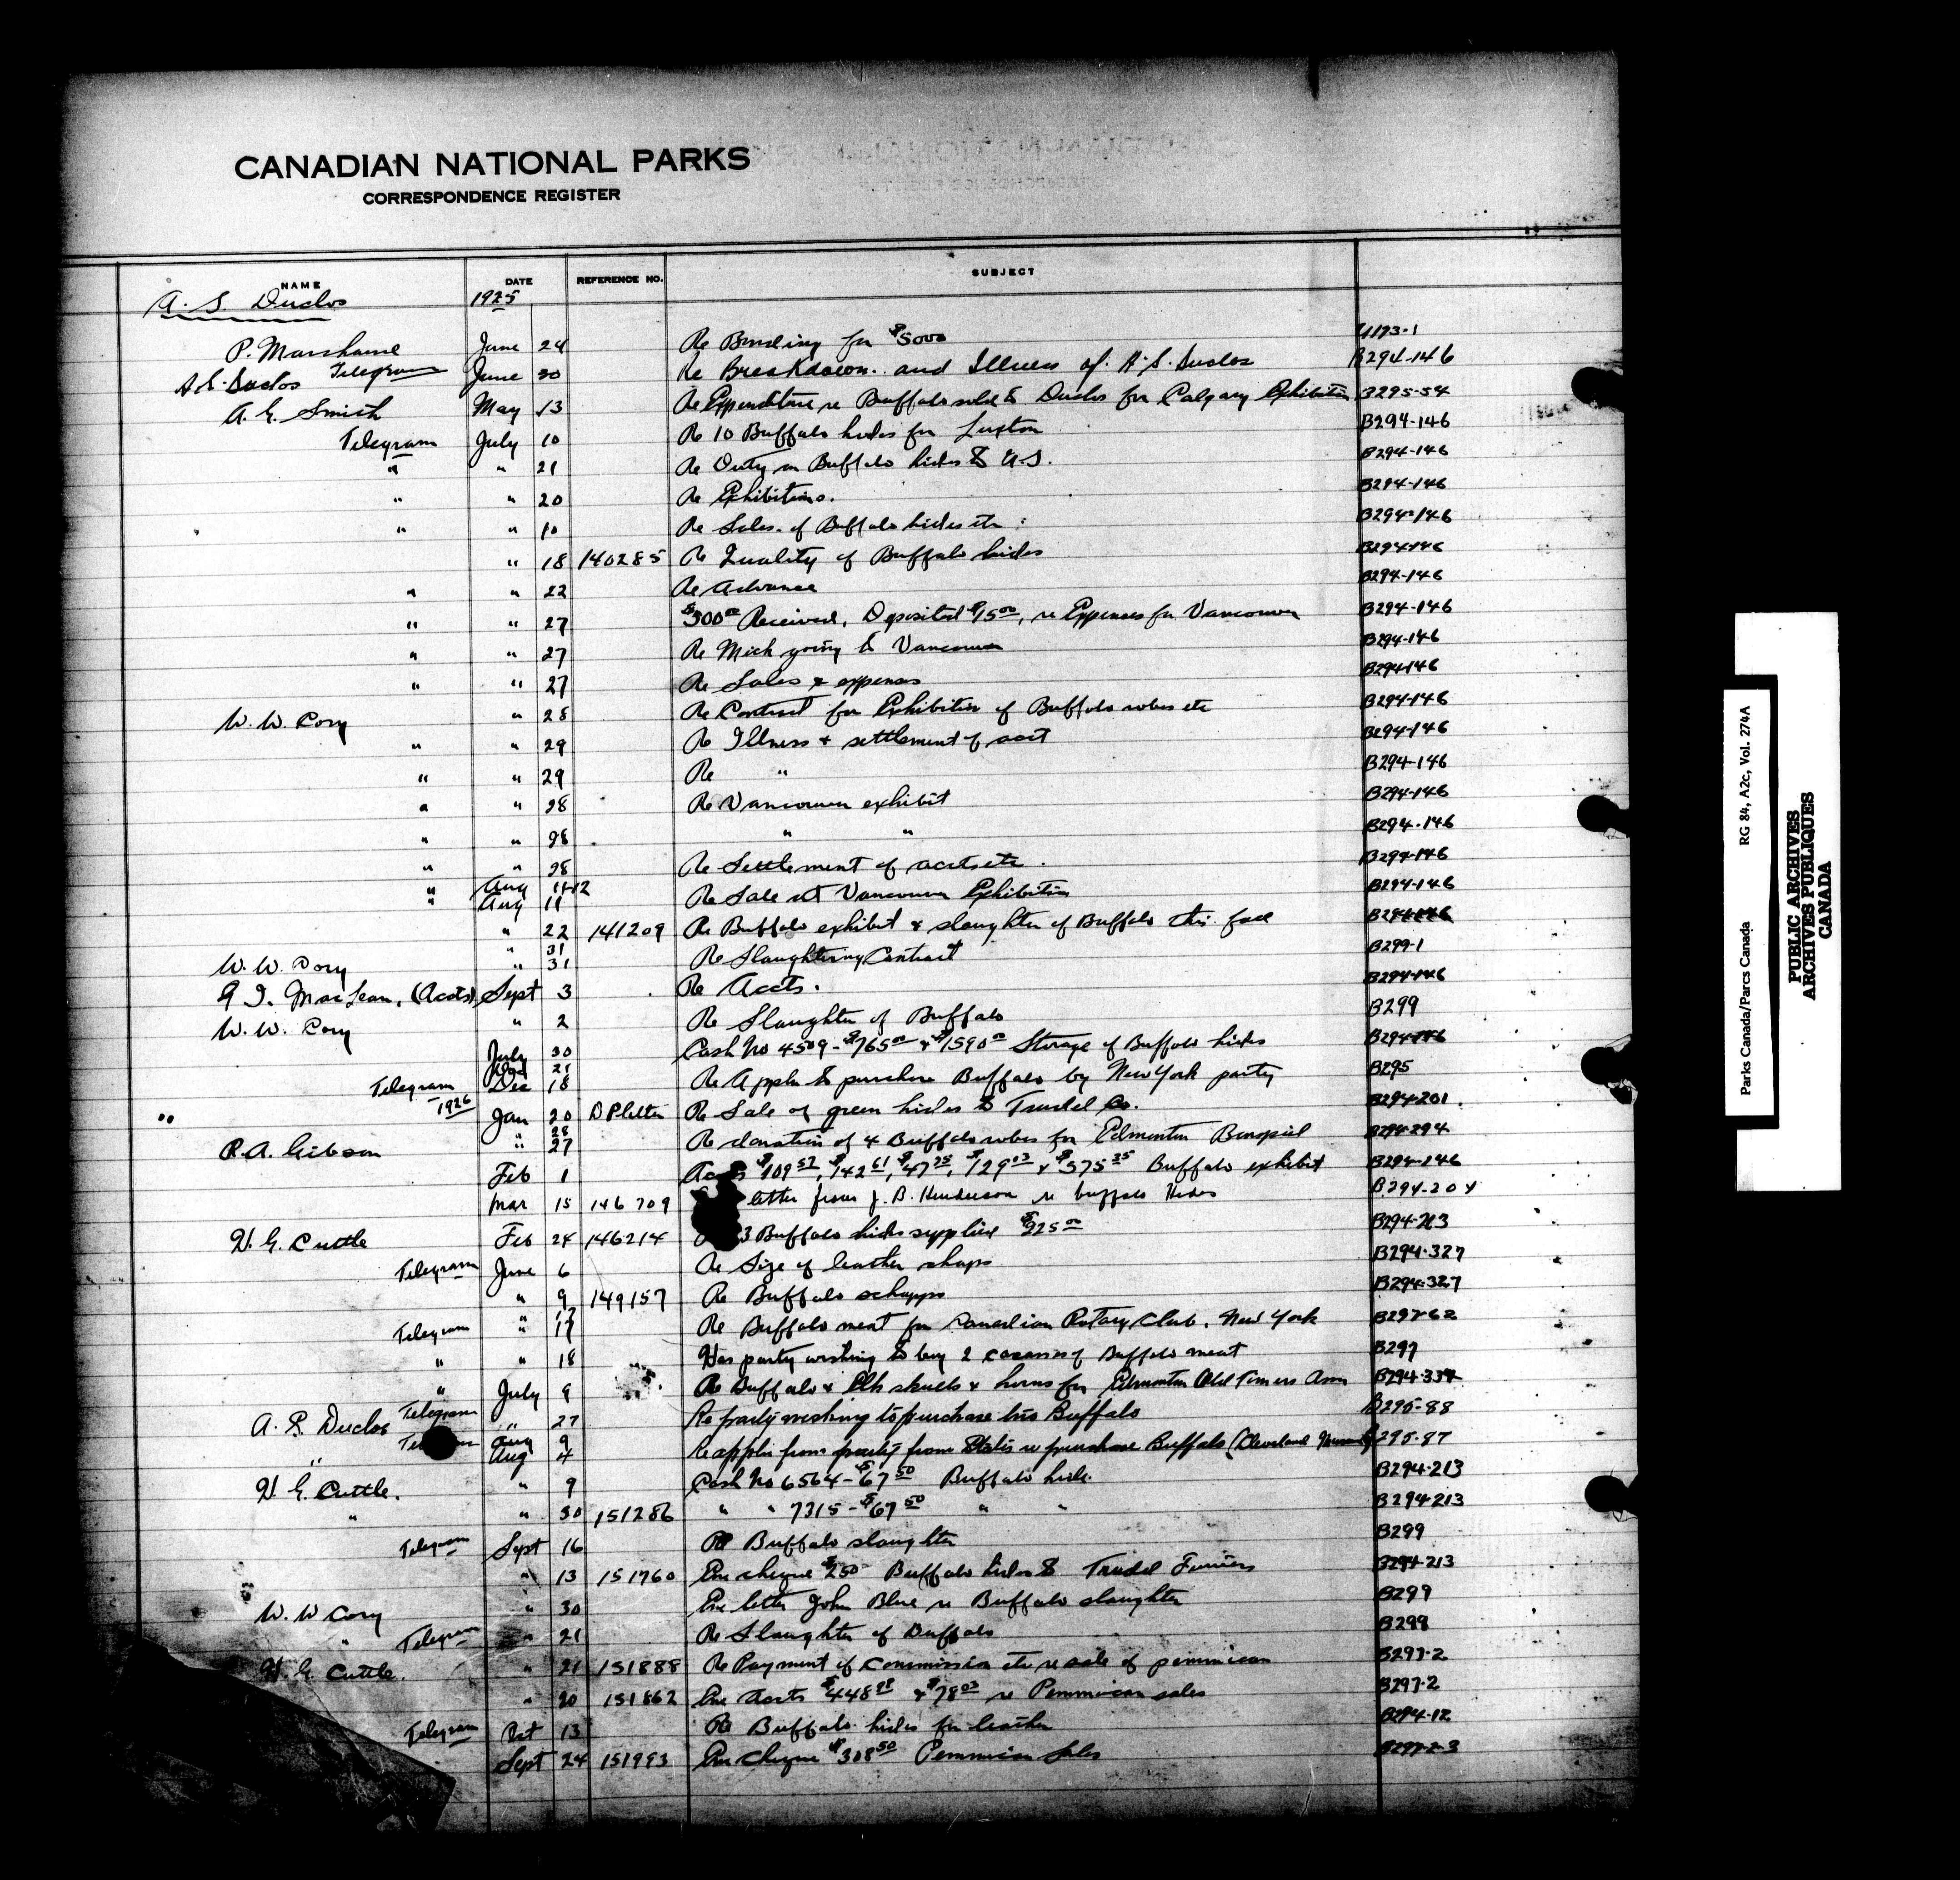 CANADIAN NATIONAL PARKS
CORRESPONDENCE REGISTER
NAME DATE REFERENCE NO. SUBJECT
A. S. Duclos 1925
P. Marchand June 24 Re Bonding for $5000 U173-1
A. S. Duclos Telegram June 30 Re Breakdown and Illness of A. S. Duclos B294-146
A. G. Smith May 13 Re Expenditure re Buffalo sold to Duclos for Calgary Exhibition B295-54
Telegram July 10 Re 10 Buffalo hides for Luxton B294-146
" " 21 Re Duty on Buffalo hides to U.S. B294-146
" " 20 Re Exhibitions. B294-146
" " 10 Re Sales of Buffalo hides etc B294-146
" 18 140285 Re Quality of Buffalo hides B294-146
" " 22 Re Advance B294-146
" " 27 $300.00 Received, Deposited $75.00, re Expenses for Vancouver B294-146
" " 27 Re Mich going to Vancouver B294-146
" " 27 Re Sales & expenses B294-146
W. W. Cory " 28 Re Contract for Exhibition of Buffalo robes etc B294-146
" " 29 Re Illness & settlement of acct B294-146
" " 29 Re " B294-146
" " 28 Re Vancouver exhibit B294-146
" " 28 " " B294-146
" " 28 Re Settlement of accts etc. B294-146
" Aug 11-12 Re Sale at Vancouver Exhibition B294-146
" Aug 11
" 22 141209 Re Buffalo exhibit & slaughter of Buffalo this fall B294-146
" 31
W. W. Cory " 31 Re Slaughtering Contract B299-1
G. I. MacLean, (Accts) Sept 3 Re Accts. B294-146
W. W. Cory " 2 Re Slaughter of Buffalo B299
July 30 Cash No 4509 - $765.00 & $1590.00 Storage of Buffalo hides B294-146
21
Telegram Dec 18 Re Appln to purchase Buffalo by New York party B295
1926
" Jan 20 DP letter Re Sale of green hides to Trudel Co. B294-201
" 28
R. A. Gibson " 27 Re donation of 4 Buffalo robes for Edmonton Bonspiel B294-294
Feb 1 Accts $109.57, $142.61, $47.75, $129.03 & $375.35 Buffalo exhibit B294-146
Mar 15 146709 letter from J. B. Henderson re buffalo Hides B294-204
H. G. Cuttle Feb 24 146214 3 Buffalo hides supplied $225.00 B294-213
Telegram June 6 Re Size of leather shaps B294-327
" 9 149157 Re Buffalo schapps B294-327
" 17
Telegram " 17 Re Buffalo meat for Canadian Rotary Club, New York B297-62
" " 18 Has party wishing to buy 2 carcasses of Buffalo meat B297
" July 9 Re Buffalo & Elk skulls & horns for Edmonton Old Timers Assn B294-334
A. S. Duclos Telegram " 27 Re party wishing to purchase two Buffalo B295-88
Aug 9
" Aug 4 Re appln from party from States re purchase Buffalo (Cleveland Museum) B295-87
H. G. Cuttle. " 9 Cash No 6564 - $67.50 Buffalo hide B294-213
" " 30 151286 " " 7315 - $67.50 " " B294-213
Telegram Sept 16 Re Buffalo slaughter B299
" 13 151760 Enc cheque $250 Buffalo hides to Trudel Furriers B294-213
W. W Cory " 30 Enc letter John Blue re Buffalo slaughter B299
" Telegram " 21 Re Slaughter of Buffalo B299
H. G. Cuttle. " 21 151888 Re Payment of commission etc re sale of pemmican B297-2
" 20 151862 Enc Accts $448.98 & $78.03 re Pemmican sales B297-2
Telegram Oct 13 Re Buffalo hides for leather B294-12
Sept 24 151993 Enc cheque $308.50 Pemmican Sales B297-2-3
Parks Canada/Parcs Canada RG 84, A2c, Vol. 274A
PUBLIC ARCHIVES
ARCHIVES PUBLIQUES
CANADA